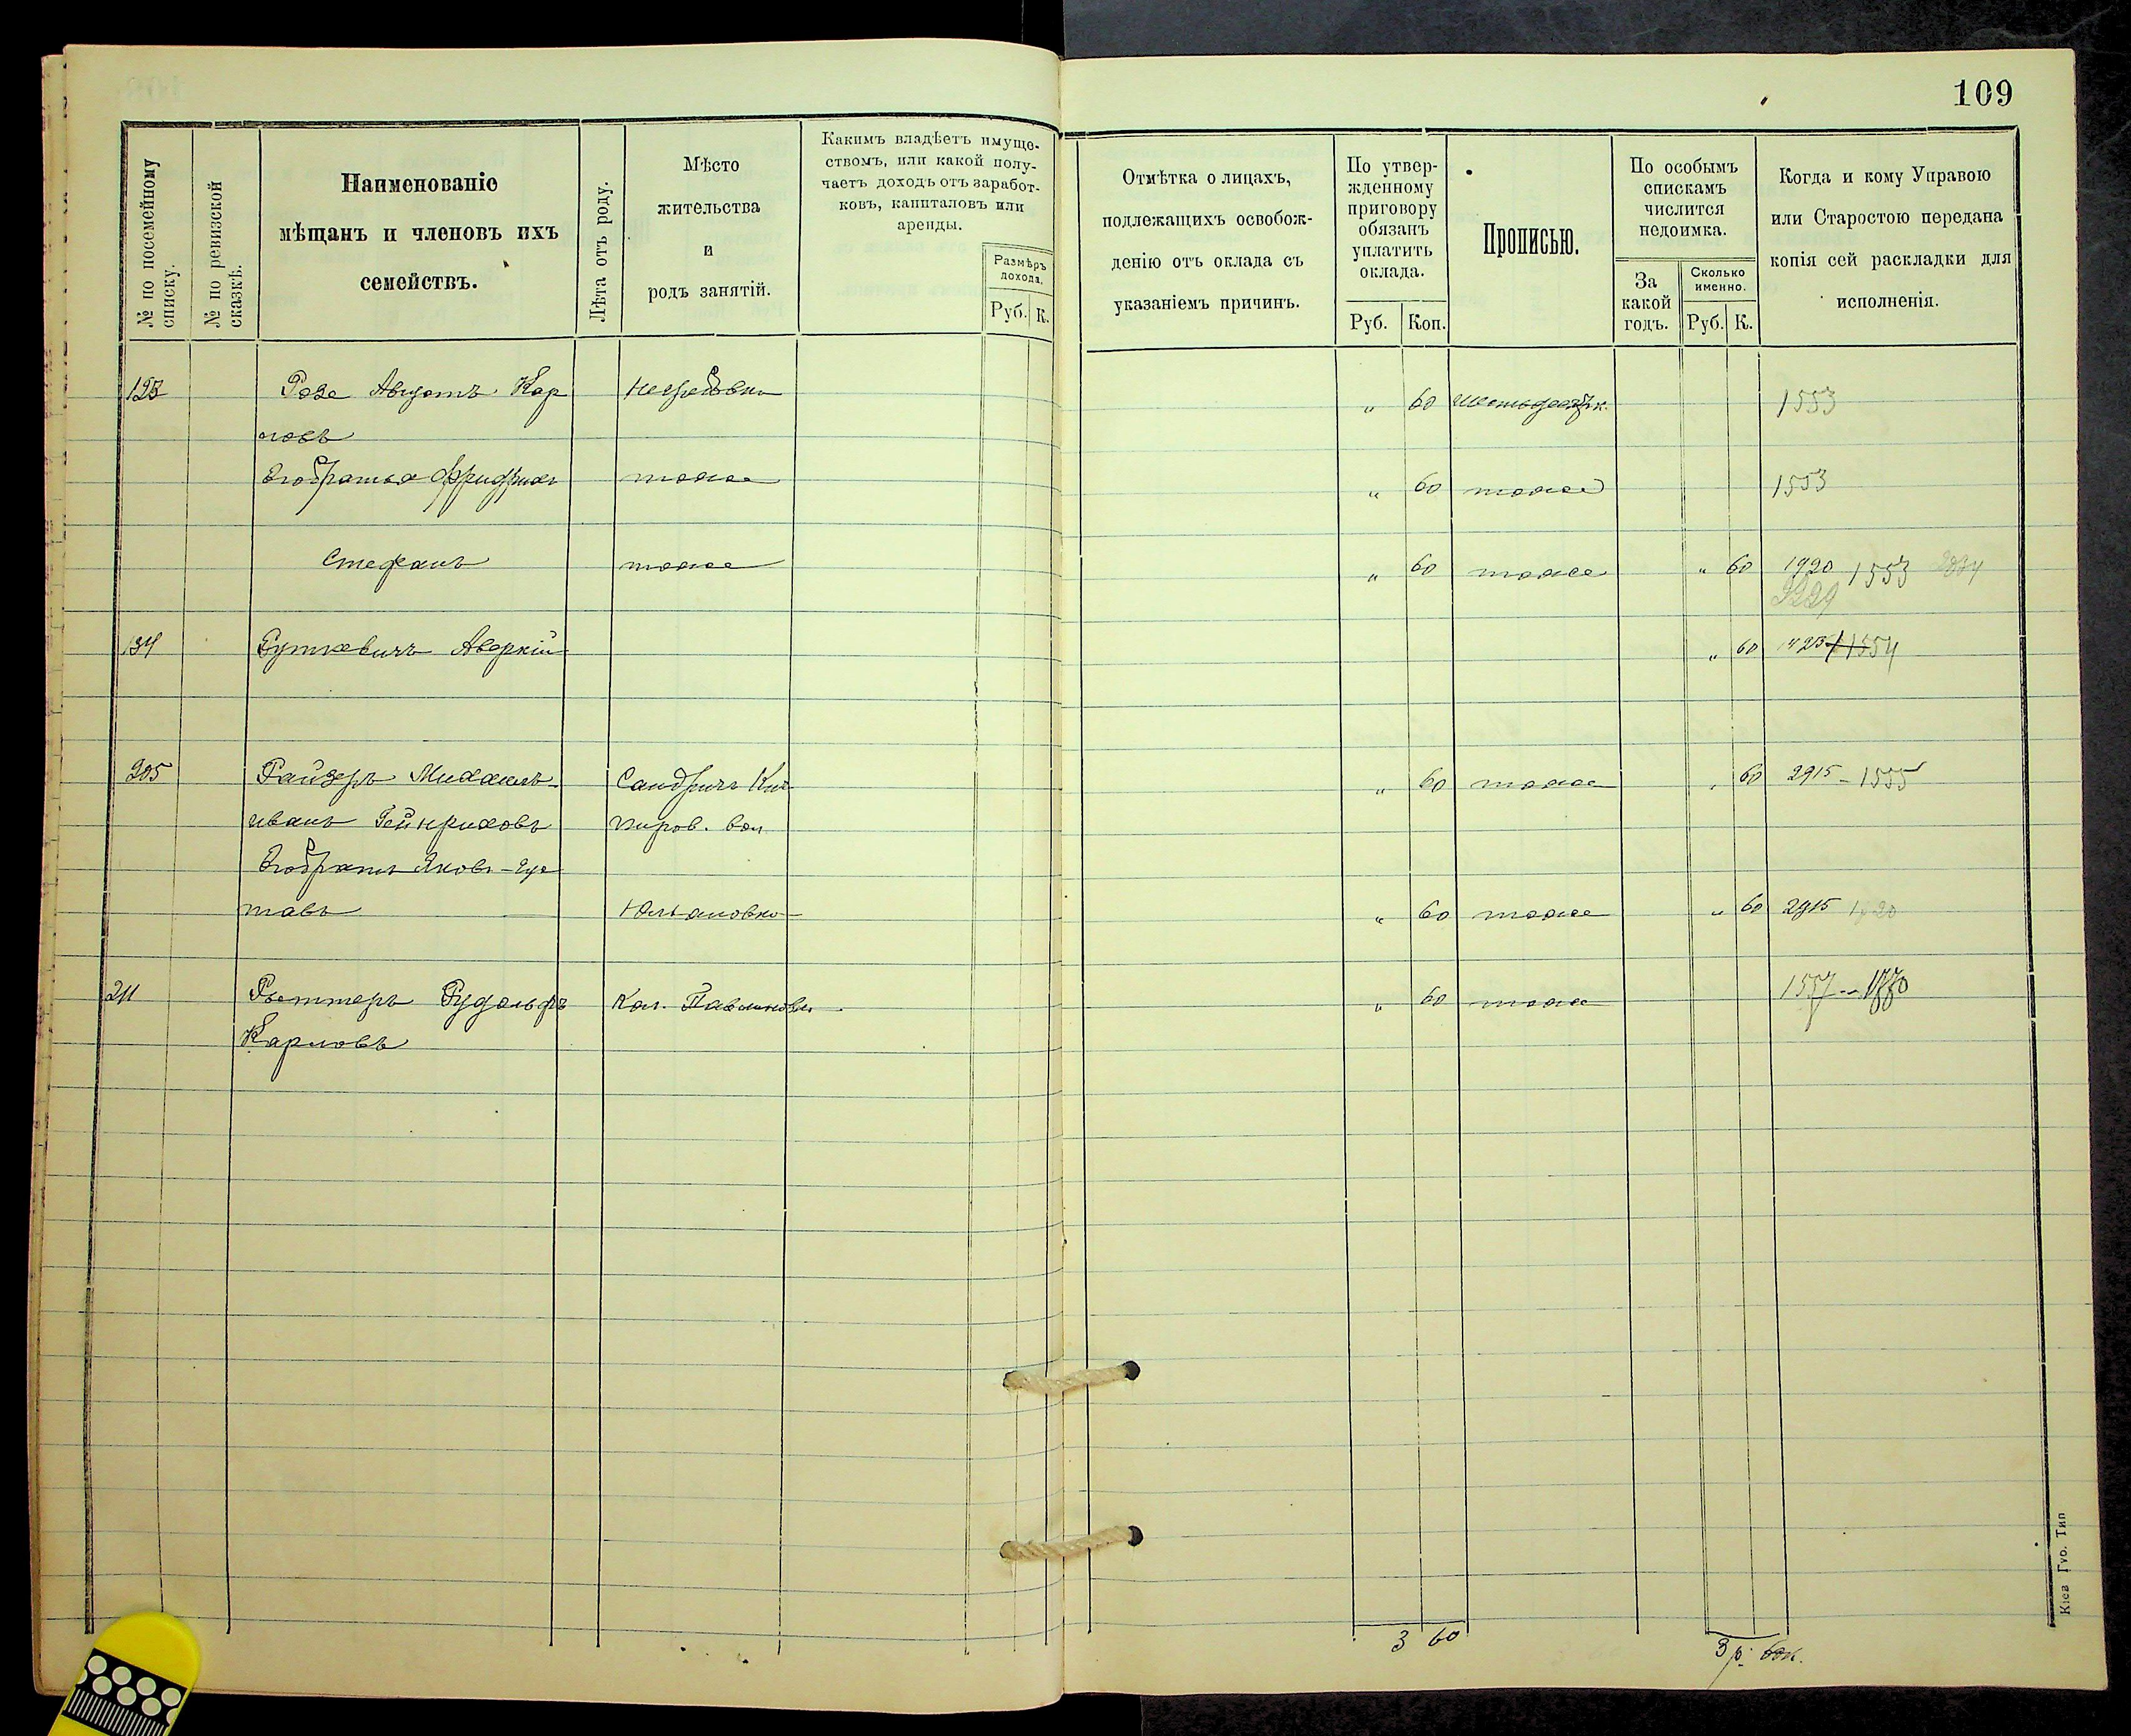 109
№ по посемейному списку.
№ по ревизской сказкѣ.
Наименованіе
мѣщанъ и членовъ ихъ
семействъ.
Лѣта отъ роду.
Мѣсто
жительства
и
родъ занятій.
Какимъ владѣетъ имуще-
ствомъ, или какой полу-
чаетъ доходъ отъ заработ-
ковъ, капиталовъ или
аренды.
Размѣръ
дохода.
Руб. К.
Отмѣтка о лицахъ,
подлежащихъ освобож-
денію отъ оклада съ
указаніемъ причинъ.
По утвер-
жденному
приговору
обязанъ
уплатить
оклада.
Руб. Коп.
Прописью.
По особымъ
спискамъ
числится
недоимка.
За
какой
годъ.
Сколько
именно.
Руб. К.
Когда и кому Управою
или Старостою передана
копія сей раскладки для
исполненія.
Розе Августъ Кар „ 60 1553
ловъ
Его братья Фридрихъ тоже „ 60 тоже 1553
Стефанъ тоже „ 60 тоже „ 60 1920 1553
134 Руткевичъ Аверкій „ 60 1554
205 Райзеръ Михаилъ- „ 60 тоже „ 60 2915 - 1555
иванъ Гейнриховъ вол
Его братъ Яковъ-Гус
тавъ Юльяновка „ 60 тоже „ 60 2915
211 Рудольфъ Кол. „ 60 тоже 1557
Карловъ
3 60
3 р. 60к.
Кіев Губ. Тип